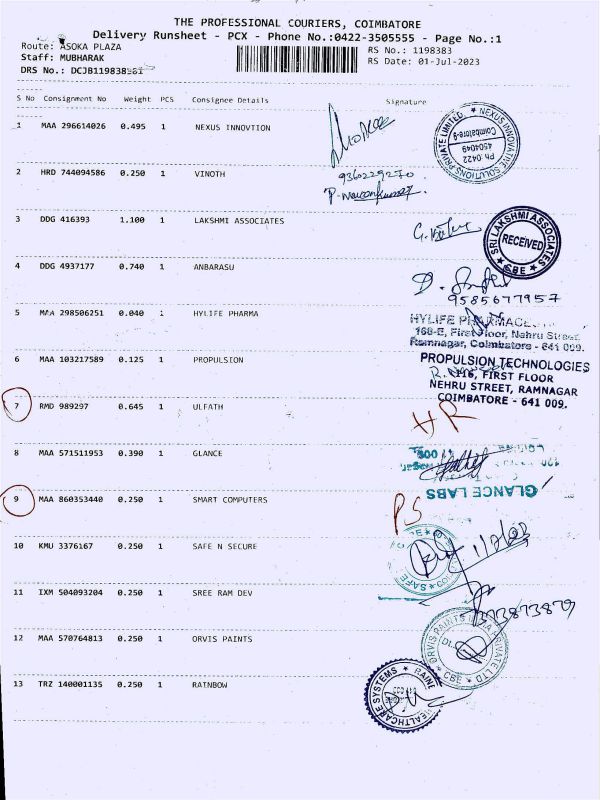 THE PROFESSIONAL COURIERS, COIMBATORE
Delivery Runsheet - PCX - Phone No.:0422-3505555 - Page No.:1
Route: ASOKA PLAZA
RS No.: 1198383
Staff: MUBHARAK
RS Date: 01-Jul-2023
DRS No.:
S No Consignment No Weight PCS Consignee Details Signature
1 MAA 296614026 0.495 1 NEXUS INNOVTION
NEXUS INNOVATIVE SOLUTIONS PRIVATE LIMITED
Ph:0422
4504049
Coimbatore-9
2 HRD 744094586 0.250 1 VINOTH
9360229270
3 DDG 416393 1.100 1 LAKSHMI ASSOCIATES
SRI LAKSHMI ASSOCIATES
RECEIVED
CBE
4 DDG 4937177 0.740 1 ANBARASU
9585677957
5 MAA 298506251 0.040 1 HYLIFE PHARMA
HYLIFE
168-E, First Floor, Nehru Street,
Ramnagar, Coimbatore - 641 009.
6 MAA 103217589 0.125 1 PROPULSION
PROPULSION TECHNOLOGIES
FIRST FLOOR
NEHRU STREET, RAMNAGAR
COIMBATORE - 641 009.
7 RMD 989297 0.645 1 ULFATH
HR
8 MAA 571511953 0.390 1 GLANCE
GLANCE LABS
9 MAA 860353440 0.250 1 SMART COMPUTERS
PS
10 KMU 3376167 0.250 1 SAFE N SECURE
SAFE
11 IXM 504093204 0.250 1 SREE RAM DEV
12 MAA 570764813 0.250 1 ORVIS PAINTS
ORVIS PAINTS INDIA PRIVATE LTD
CBE
13 TRZ 140001135 0.250 1 RAINBOW
HEALTHCARE SYSTEMS